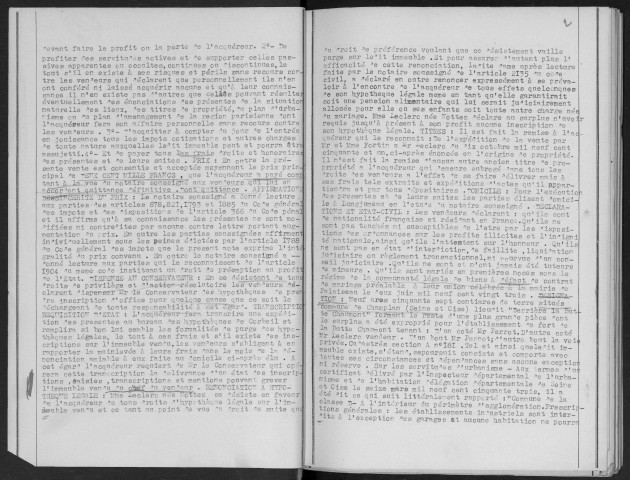 devant faire le profit ou la perte de l'acquéreur. 2°- De
profiter des servitudes actives et de supporter celles passives
apparentes ou occultes, continues ou discontinues, le
tout s'il en existe à ses risques et périls sans recours contre
les vendeurs qui déclarent que personnellement ils n'en
ont conféré ni laissé acquérir aucune et qu'à leur connaissance
il n'en existe pas
éventuellement des énonciations des présentes de la situation
naturelle des lieux, des titres de propriété, du plan d'urbanisme
ou plan d'aménagement de la région parisienne dont
l'acquéreur fera son affaire personnelle sans recours contre
les vendeurs. 3°- D'acquitter à compter du jour de l'entrée
en jouissance tous les impôts cotisations et autres charges
de toute nature auxquelles le dit immeuble peut et pourra être
assujetti. 4°- Et de payer tous les frais droits et honoraires
des présentes et de leurs suites. PRIX : En outre la présente
vente est consentie et acceptée moyennant le prix principal
de CENT MILLE FRANCS, que l'acquéreur a payé comptant
à la vue du notaire soussigné aux vendeurs qui lui en
consentent quittance définitive. Dont quittance - AFFIRMATIONS
PRIX : Le notaire soussigné a donné lecture
aux parties des articles 678, 821, 1793 et 1885 du Code général
des impôts et des dispositions de l'article 366 du Code pénal
et il affirme qu'à sa connaissance les présentes ne sont modifiées
ni contredites par aucune contre lettre portant augmentation
du prix. En outre les parties soussignées affirment
individuellement sous les peines édictées par l'article 1788
du Code général des impôts que le présent acte exprime l'intégralité
du prix convenu. En outre le notaire soussigné a
donné lecture aux parties qui le reconnaissent de l'article
1904 du même code instituant un droit de préemption au profit
de l'Etat.
droits de privilège et l'action résolutoire les vendeurs déclarent
dispenser Mr le Conservateur des hypothèques de prendre
inscription d'office pour quelque cause que ce soit le
déchargeant de toute responsabilité à cet égard. TRANSCRIPTION
REQUISITION D'ETAT : L'acquéreur fera transcrire une expédition
des présentes au bureau des hypothèques de Corbeil et
remplira si bon lui semble les formalités de purge des hypothèques
légales, le tout à ses frais et s'il existe des inscriptions
sur l'immeuble vendu, les vendeurs s'obligent à en
rapporter la mainlevée à leurs frais dans le mois de la dénonciation
amiable à eux faite au domicile ci-après élu. A
cet égard l'acquéreur requiert de Mr le Conservateur qui opérera
cette transcription la délivrance d'un état des inscriptions,
saisies, transcriptions et mentions pouvant grever
l'immeuble vendu du chef du vendeur. - RENONCIATION A HYPOTHEQUE
LEGALE : Mme Leclere née Nottes se désiste en faveur
de l'acquéreur de tous droits d'hypothèque légale sur l'immeuble
vendu et ce tant au point de vue du droit de suite que
2
du droit de préférence voulant que ce désistement vaille
purge sur le dit immeuble. Et pour assurer d'autant plus l'
efficacité de cette renonciation, la dite dame après lecture
faite par le notaire soussigné de l'article 2135 du code
civil, a déclaré en outre renoncer expressément à se prévaloir
à l'encontre de l'acquéreur de tous effets quelconques
de son hypothèque légale même en tant qu'elle garantirait
soit une pension alimentaire qui lui serait judiciairement
allouée pour elle ou ses enfants soit toute autre charge née
du mariage. Mme Leclere née Nottes déclare au surplus n'avoir
requis jusqu'à présent à son profit aucune inscription de
son hypothèque légale. TITRES : Il est fait la remise à l'acquéreur
qui le reconnait : De l'expédition de la vente par
Mr et Mme Fortin à Mr Leclere du dix octobre mil neuf cent
cinquante et un, ci-après énoncée en l'origine de propriété.
Il n'est fait la remise d'aucun autre ancien titre de propriété
à l'acquéreur qui demeure subrogé dans tous les
droits des vendeurs à l'effet de se faire délivrer mais à
ses frais tels extraits et expéditions d'actes qu'il appartiendra
et par tous dépositaires. DOMICILE : Pour l'exécution
des présentes et de leurs suites les parties élisent domicile
à Longjumeau en l'étude du notaire soussigné. DECLARATIONS
ET ETAT-CIVIL : Les vendeurs déclarent : qu'ils sont
de nationalité française et résident en France. Qu'ils ne
sont pas touchés ni susceptibles de l'être par les dispositions
des ordonnances sur les profits illicites et d'indignité
nationale, ainsi qu'ils l'attestent sur l'honneur. Qu'ils
ne sont pas en état d'interdiction, de faillite, liquidation
judiciaire ou règlement transactionnel, ni pourvus d'un conseil
judiciaire. Qu'ils ne sont et n'ont jamais été tuteurs
de mineurs. Qu'ils sont mariés en premières noces sous le
régime de la communauté légale de biens à défaut de contrat
de mariage préalable à leur union célébrée à la mairie de
Palaiseau le deux juin mil neuf cent vingt trois. DESIGNATION :
Neuf ares cinquante sept centiares de terre située
commune de Champlan (Seine et Oise) lieudit "Derrière la Butte
Chaumont" formant le reste d'une plus grande pièce dont
le surplus a été exproprié pour l'établissement du fort de
la Butte Chaumont tenant : D'un côté Mr Perrot. D'autre côté
Mr Leclere vendeur. D'un bout Mr Perrot; d'autre bout la voie
privée. Cadastrée section A n°181. Tel et ainsi que le dit immeuble
existe, s'étend, se poursuit consiste et comporte avec
toutes ses circonstances et dépendances sans aucune exception
ni réserve. Sur les servitudes d'urbanisme - Aux termes d'un
certificat délivré par l'Inspecteur départemental de l'urbanisme
et de l'habitation délégation départementale de Seine
et Oise le seize mars mil neuf cent cinquante trois, il a
été dit ce qui suit littéralement rapporté : "Commune de la
classe - A l'intérieur du périmètre d'agglomération. Prescriptions
générales : les établissements industriels sont interdits
à l'exception des garages et aucune habitation ne pourra